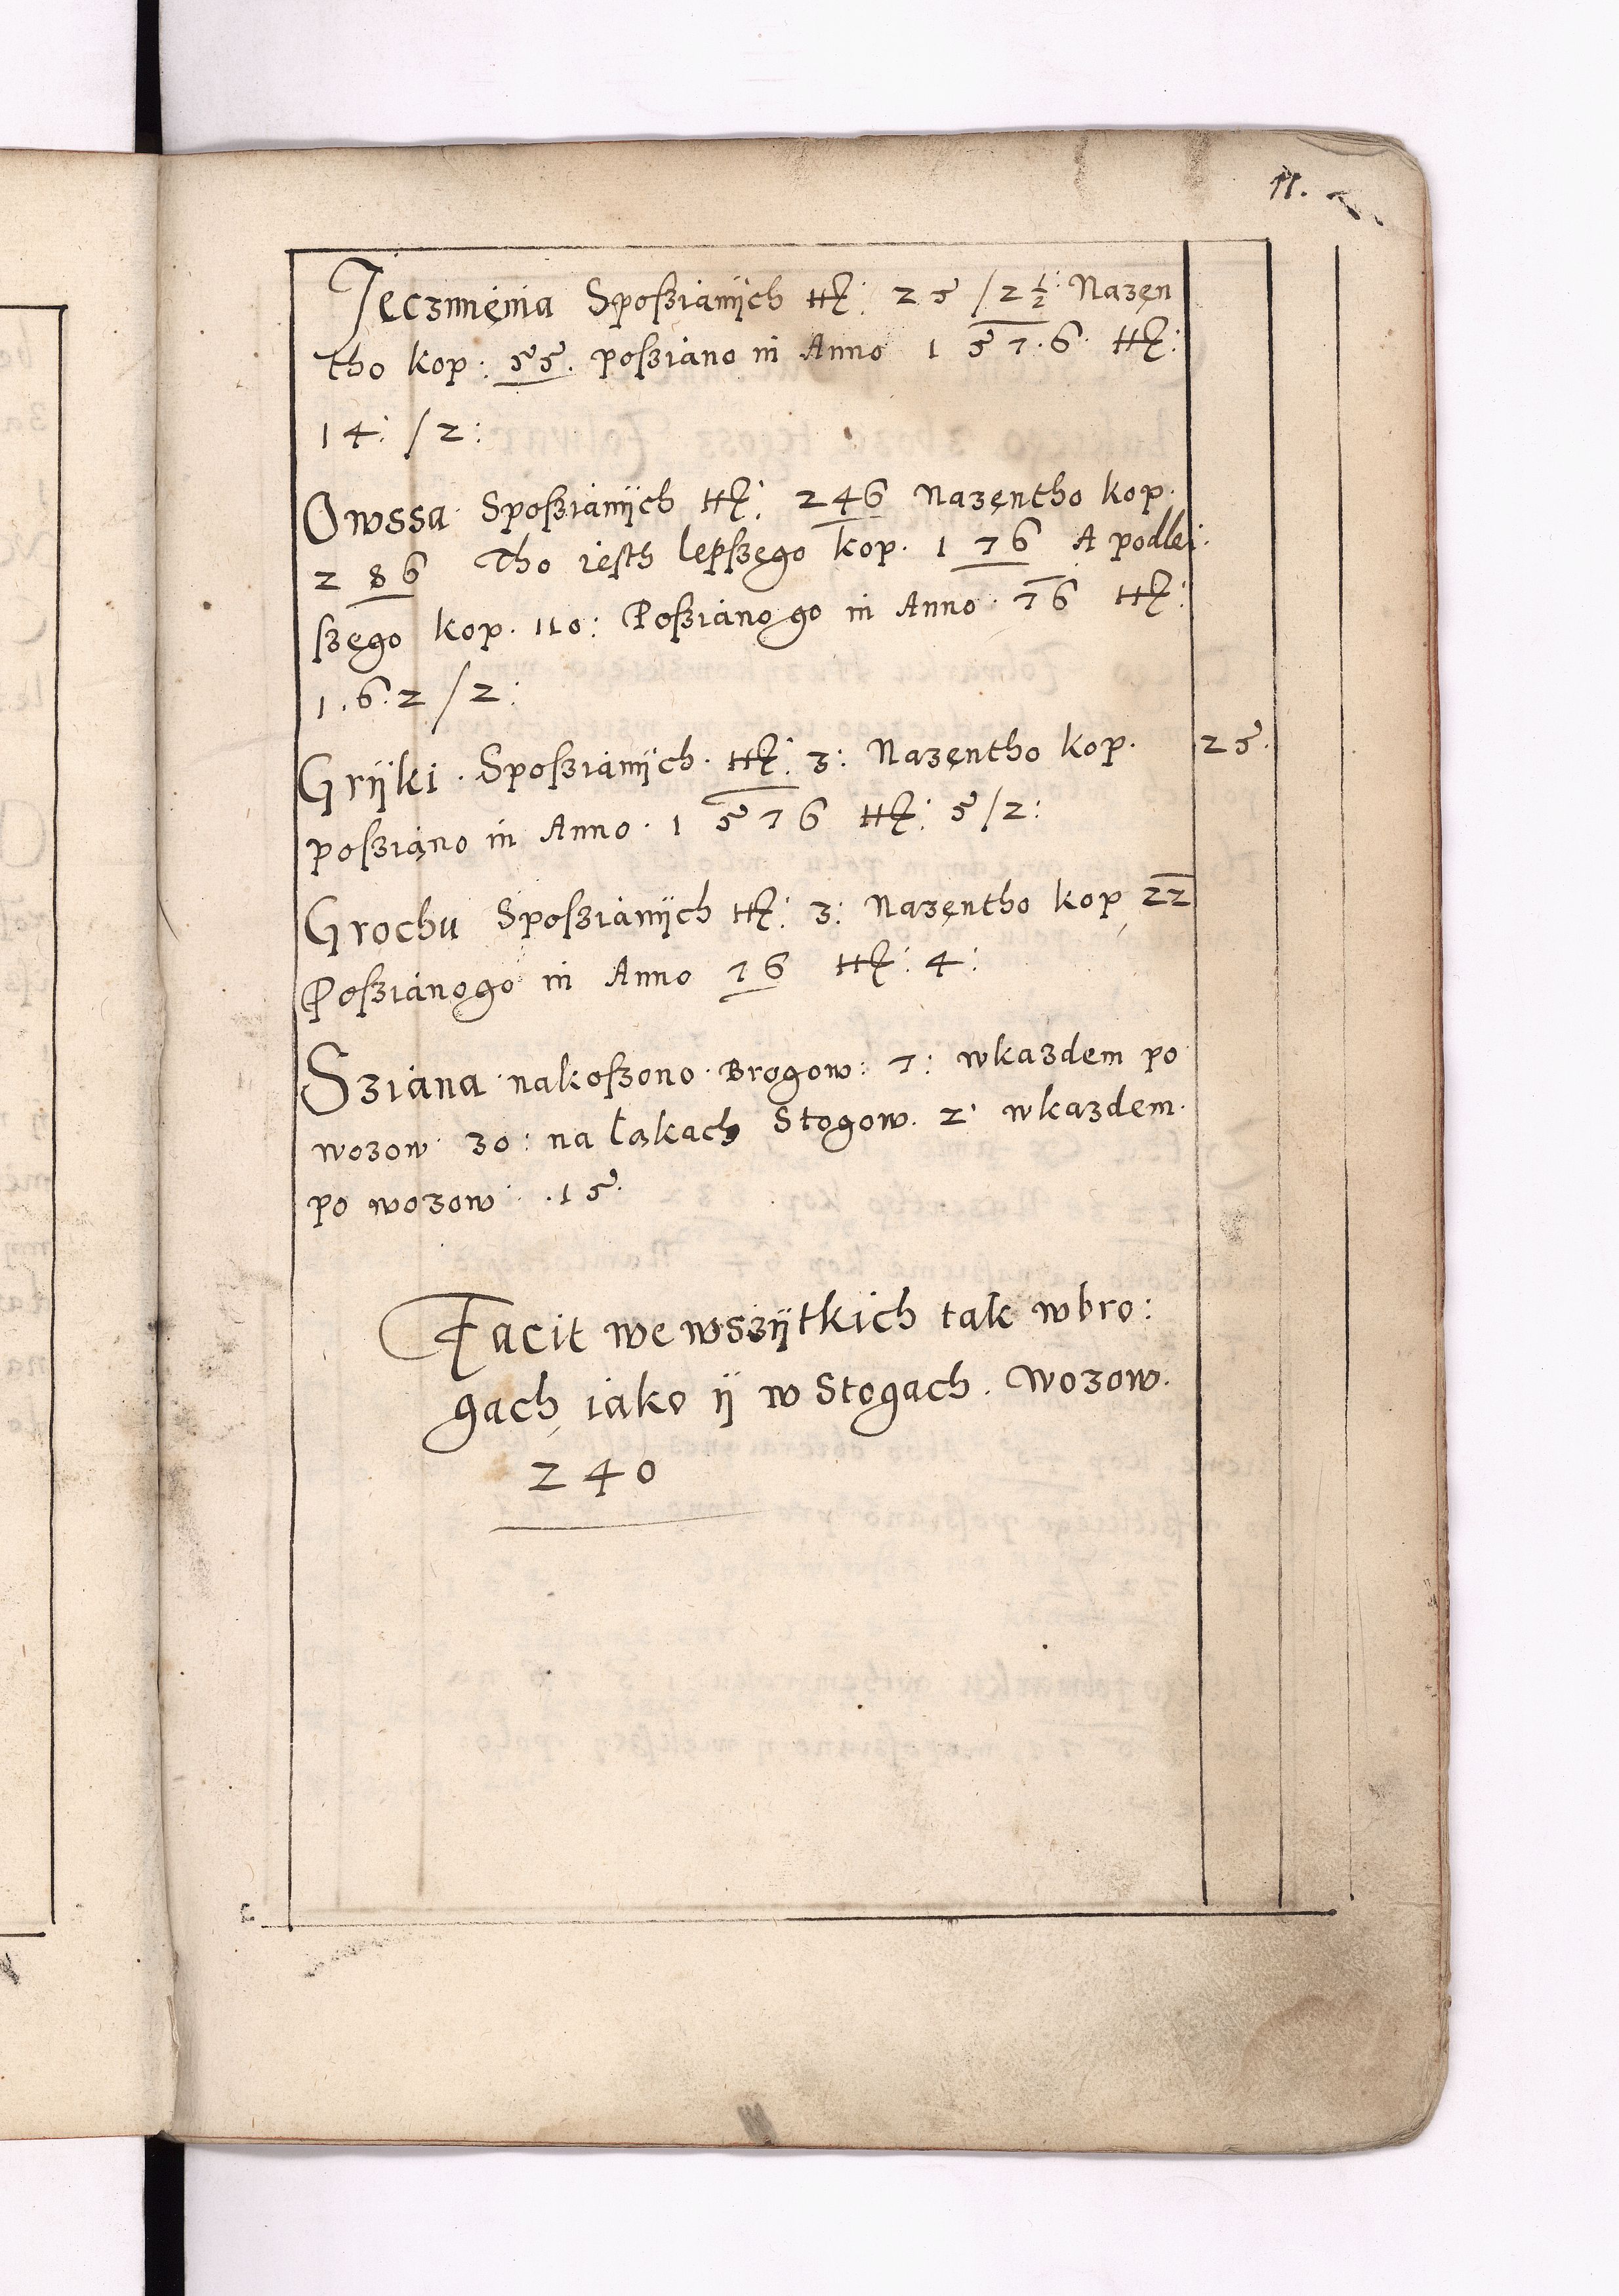 11.
Jęczmięnia Spoßianÿch tt: 25 /2½: Nazęn
tho kop: 55. poßiano in Anno 1 57.6. tt:
14: /2:
Owssa Spoßianÿch tt: 246 Nazęntho kop.
286 Tho iesth lepszego kop. 176 A podlei.
szego kop. 110: Poßiano go in Anno 76 tt:
1.6.2 /2:
Grÿki. Spoßianÿch. tt: 3: Nazęntho kop. 25.
poßiano in Anno. 1 576 tt: 5/2:
Grochu Spoßianÿch tt: 3: Nazęntho kop 22
Poßianogo in Anno 76 tt: 4:
Sziana nakoszono Brogow: 7: wkazdem po
wozow 30: na łąkach Stogow. 2 wkazdem.
po wozow .15.
Facit we wszÿtkich tak wbro:
gach iako ÿ w Stogach. Wozow.
240